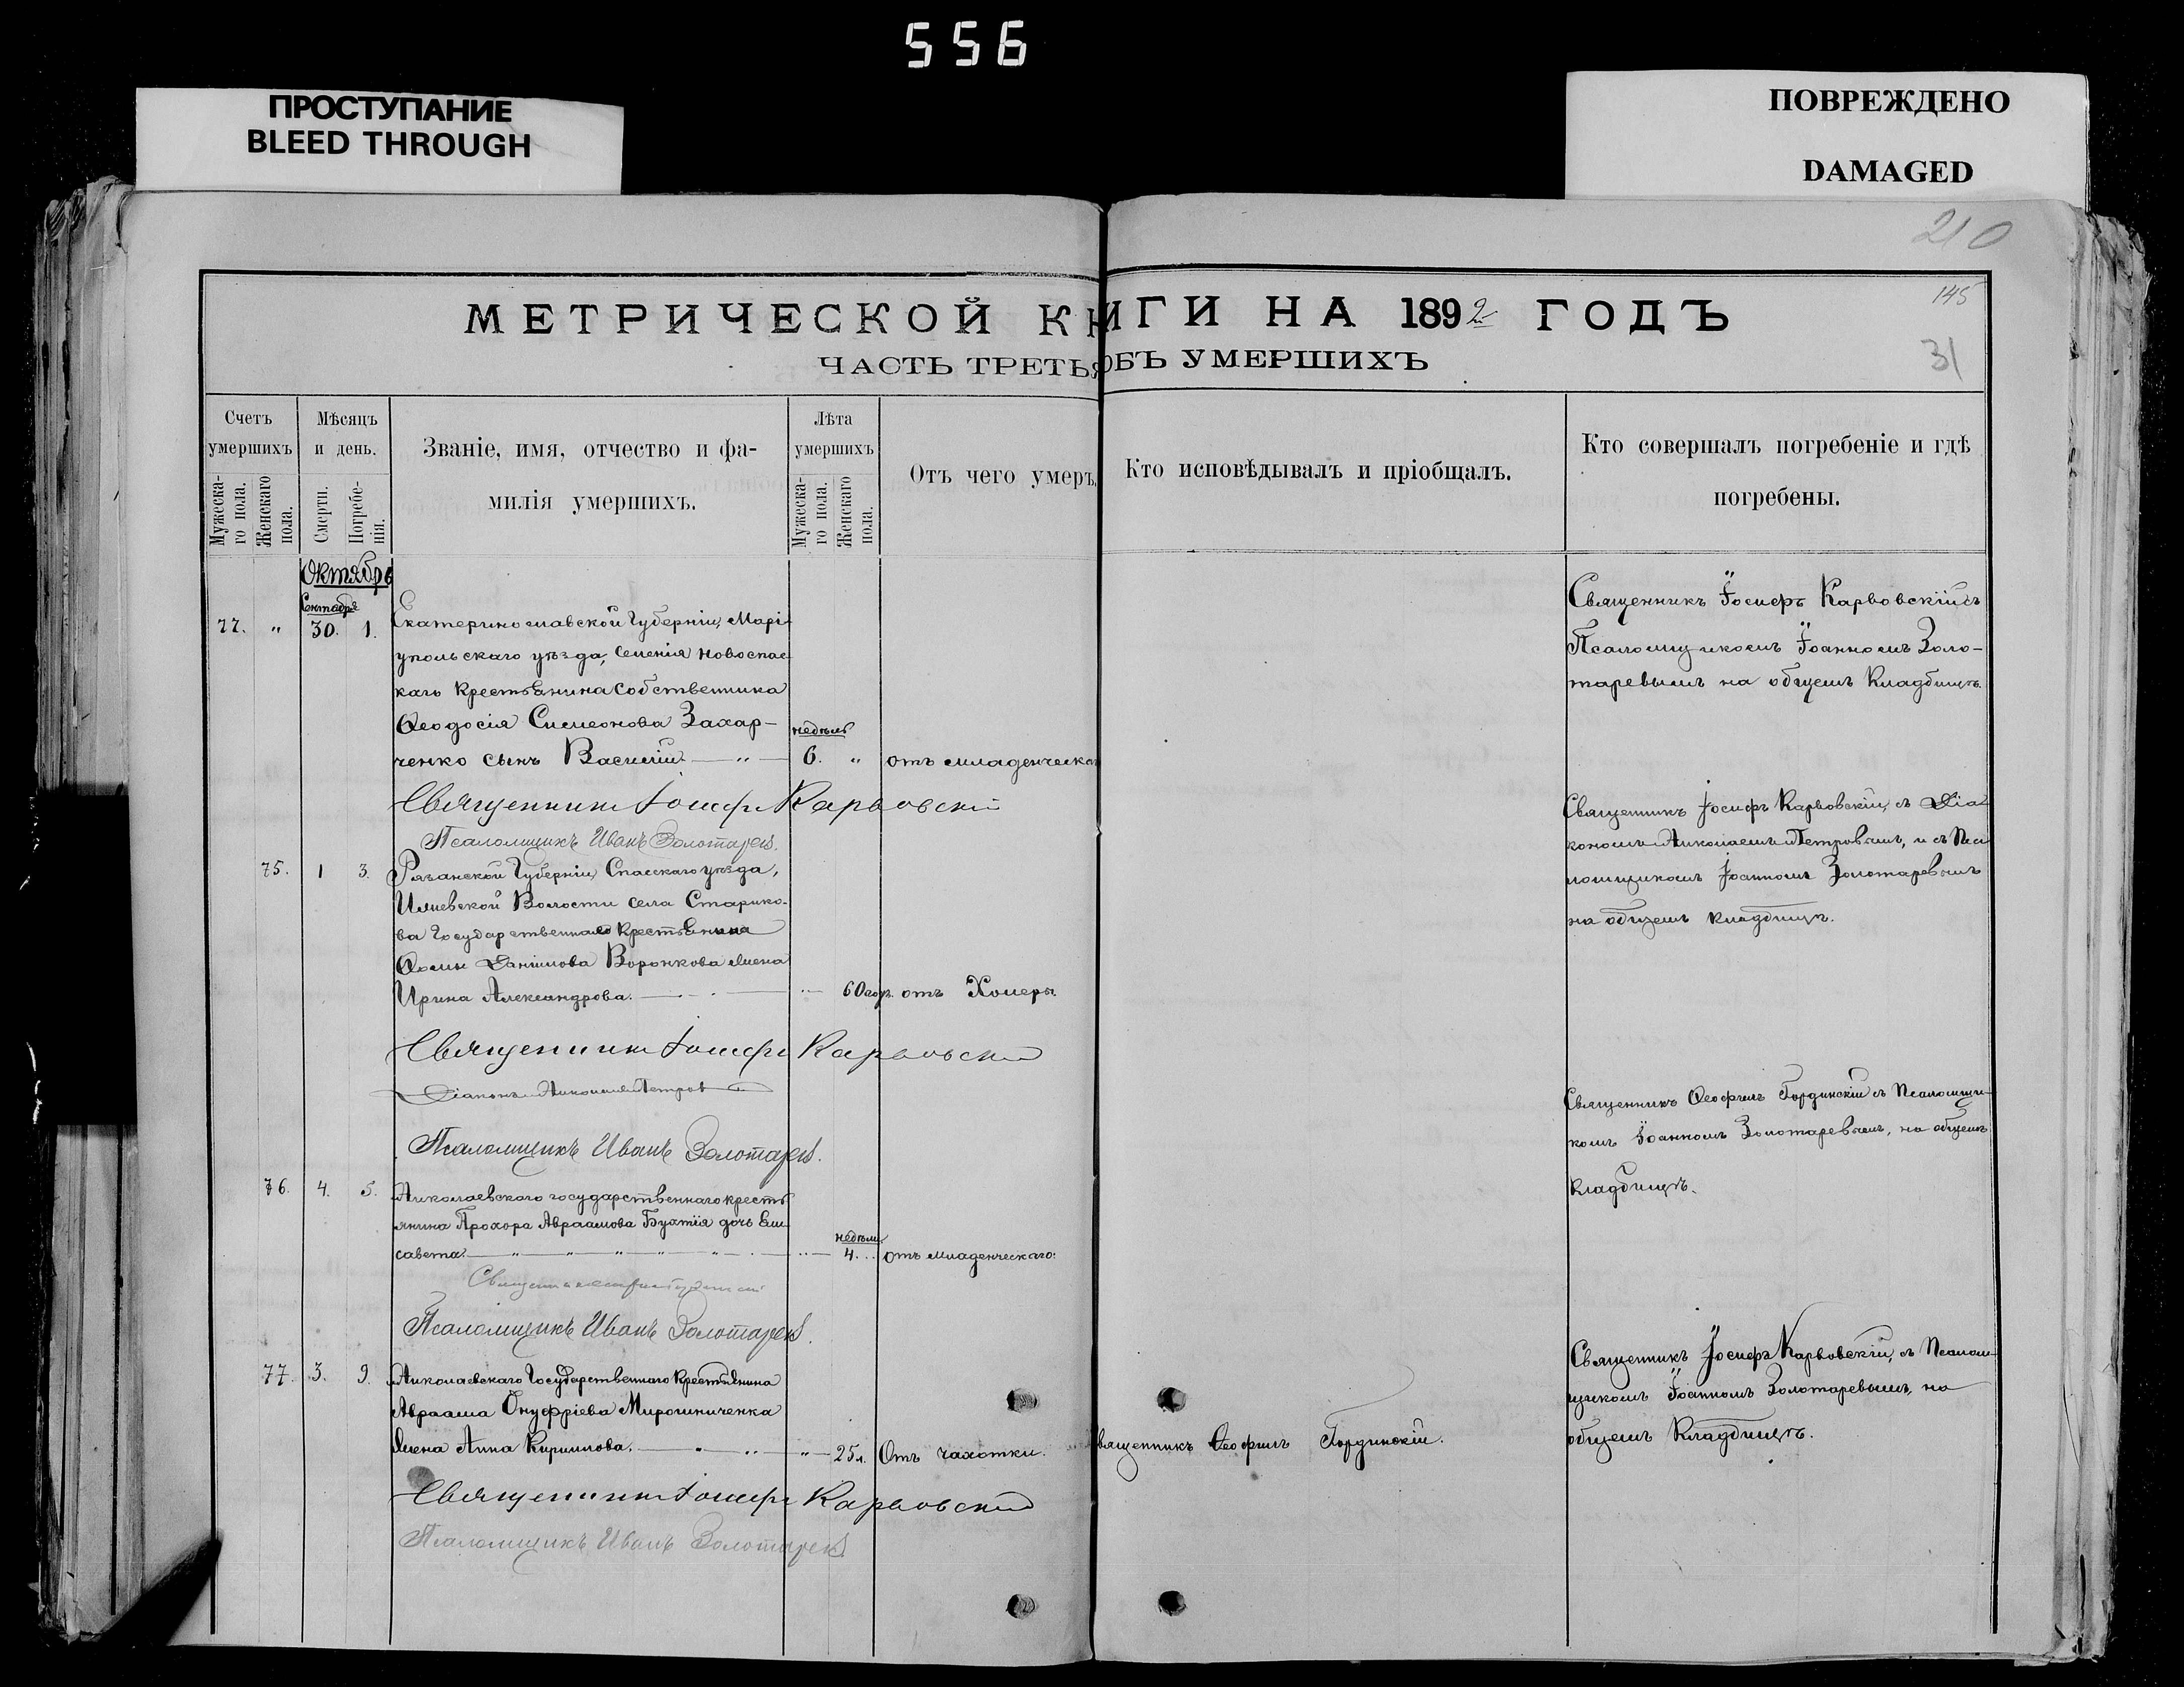 556
ПРОСТУПАНИЕ
BLEED THROUGH
ПОВРЕЖДЕНО
DAMAGED
210
МЕТРИЧЕСКОЙ КНИГИ НА 1892 ГОДЪ
145
ЧАСТЬ ТРЕТЬЯ ОБЪ УМЕРШИХЪ
31
Счетъ умершихъ
Мужеска-го пола.
Женскаго пола.
Мѣсяцъ и день.
Смерти.
Погребе-нія.
Званіе, имя, отчество и фа-
милія умершихъ.
Лѣта умершихъ
Мужеска-го пола.
Женскаго пола.
Отъ чего умеръ.
Кто исповѣдывалъ и пріобщалъ.
Кто совершалъ погребеніе и гдѣ
погребены.
Октябрь
Сентября
77. " 30. 1.
Екатеринославской Губерніи, Марі-
упольскаго уѣзда, Селенія Новоспас-
каго Крестьянина Собственника
Ѳеодосія Симеонова Захар-
ченко сынъ Василій
недѣль
6. " отъ младенческа
Священникъ Іосифъ Карвовскій съ
Псаломщикомъ Іоанномъ Золо-
таревымъ на общемъ Кладбищѣ.
Священникъ Іосифъ Карвовскій
Псаломщикъ Иванъ Золотаревъ.
75. 1 3.
Рязанской Губерніи, Спасскаго уѣзда,
Волости села Старико-
ва Государственнаго Крестьянина
Ѳомы Даніилова Воронкова жена
Ирина Александрова.
60 отъ Холеры.
Священникъ Іосифъ Карвовскій, съ Діа
кономъ Николаемъ Петровымъ, и съ Пса
ломщикомъ Іоанномъ Золотаревымъ
на общемъ кладбищѣ.
Священникъ Іосифъ Карвовскій
Діаконъ Николай Петровъ
Псаломщикъ Иванъ Золотаревъ.
76. 4. 5.
Николаевскаго государственнаго кресть
янина Прохора Авраамова дочь Ели
савета.
недѣли
4. отъ младенческаго.
Священникъ Ѳеофилъ Гординскій съ Псаломщи-
комъ Іоанномъ Золотаревымъ, на общемъ
Кладбищѣ.
Псаломщикъ Иванъ Золотаревъ.
77. 3. 9.
Николаевскаго Государственнаго Крестьянина
Авраама Онуфріева Мирошниченка
жена Анна Кирилова.
25 л. Отъ чахотки.
вященникъ Ѳеофилъ Гординскій.
Священникъ Іосифъ Карвовскій, съ Псалом-
щикомъ Іоанномъ Золотаревымъ, на
общемъ Кладбищѣ.
Священникъ Іосифъ Карвовскій
Псаломщикъ Иванъ Золотаревъ